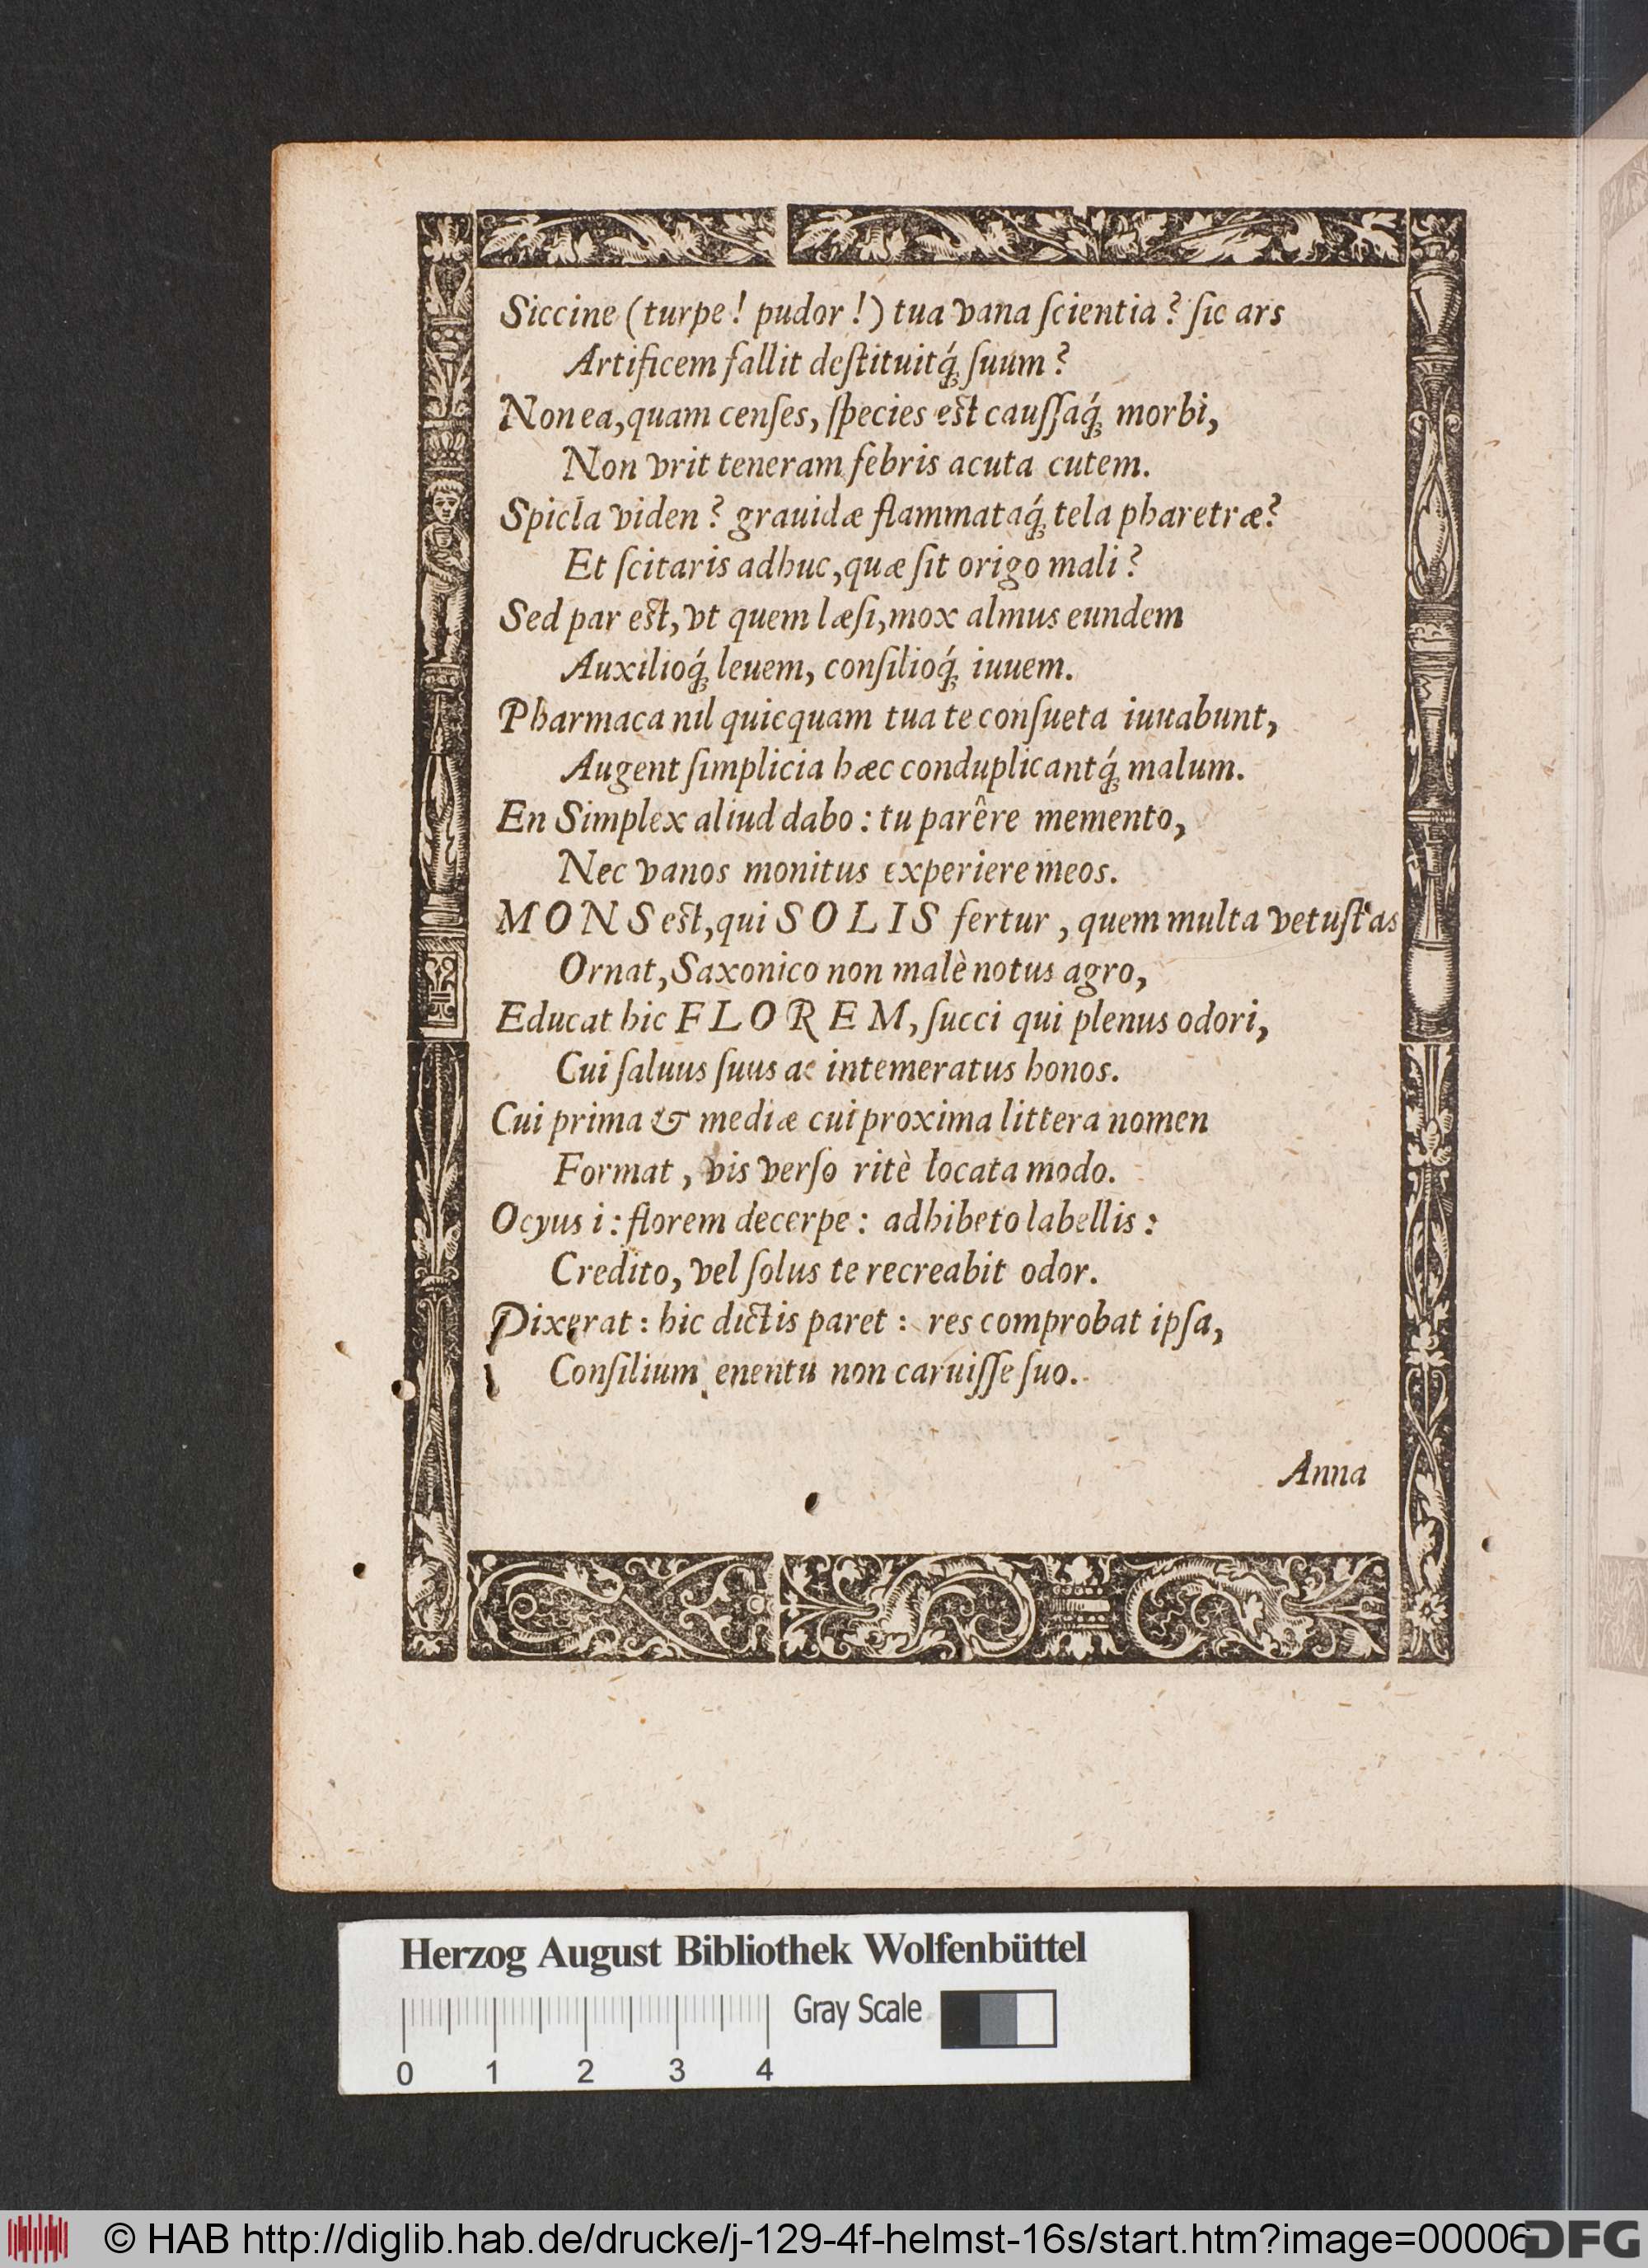 Siccine (turpe! pudor!) tua vana ſcientia? ſic ars
Artificem fallit deſtituitq́; ſuum?
Non ea, quam cenſes, ſpecies eſt cauſſaq́; morbi,
Non vrit teneram febris acuta cutem.
Spicla viden? grauidæ flammataq́; tela pharetræ?
Et ſcitaris adhuc, quæ ſit origo mali?
Sed par eſt, vt quem læſi, mox almus eundem
Auxilioq́; leuem, conſilioq́; iuuem.
Pharmaca nil quicquam tua te conſueta iuuabunt,
Augent ſimplicia hæc conduplicantq́; malum.
En Simplex aliud dabo: tu parêre memento,
Nec vanos monitus experiere meos.
MONS eſt, qui SOLIS fertur, quem multa vetuſtas
Ornat, Saxonico non malè notus agro,
Educat hic FLOREM, ſucci qui plenus odori,
Cui ſaluus ſuus ac intemeratus honos.
Cui prima & mediæ cui proxima littera nomen
Format, vis verſo ritè locata modo.
Ocyus i: florem decerpe: adhibeto labellis:
Credito, vel ſolus te recreabit odor.
Dixerat: hic dictis paret: res comprobat ipſa,
Conſilium enentu non caruiſſe ſuo.
Anna
Herzog August Bibliothek Wolfenbüttel
Gray Scale
0 1 2 3 4
© HAB http://diglib.hab.de/drucke/j-129-4f-helmst-16s/start.htm?image=00006
DFG